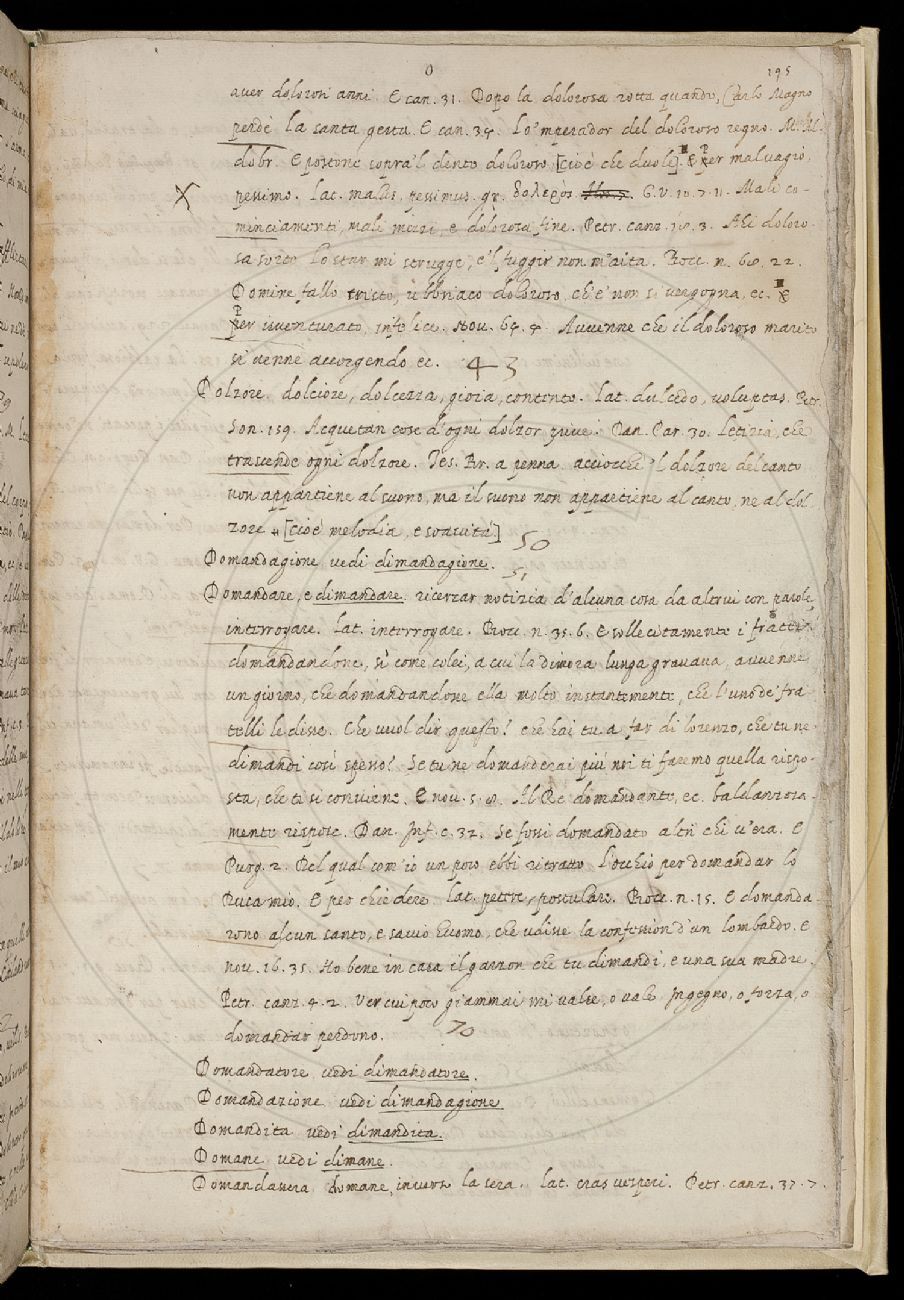 O 195
aver dolorosi anni. E can. 31. Dopo la dolorosa rotta quando, Carlo Magno
perdè la santa gesta. E can. 34. Lo 'mperador del doloroso regno. M. Al-
dobr. E postone sopra 'l dente doloroso [cioè che duole]. ¶ Per malvagio,
X pessimo. Lat. malus, pessimus. gr. δολερὸς. G. V. 10. 7. 11. Mali co-
minciamenti, mali mezzi, e dolorosa fine. Petr. canz. 18. 3. Ahi doloro-
sa sorte Lo star mi strugge, e 'l fuggir non m'aita. Bocc. n. 68. 22.
Domine fallo tristo, ubbriaco doloroso, che e' non si vergogna, ec. ¶
Per isventurato, infelice. Nov. 64. 4. Avvenne che il doloroso marito
si venne accorgendo ec. 43
Dolzore. dolciore, dolcezza, gioia, contento. Lat. dulcedo, voluptas. Petr.
Son. 159. Acquetan cose d'ogni dolzor prive. Dan. Par. 30. Letizia, che
trascende ogni dolzore. Tes. Br. a penna. acciocche 'l dolzore del canto
non appartiene al suono, ma il suono non appartiene al canto, ne al dol-
zore [cioè melodia, e soavità] 50
Domandagione vedi dimandagione.
51
Domandare, e dimandare. ricercar notizia d'alcuna cosa da altrui con parole,
interrogare. Lat. interrogare. Bocc. n. 35. 6. E sollecitamente i fratei
domandandone, sì come colei, a cui la dimora lunga gravava, avvenne
un giorno, che domandandone ella molto instantemente, che l'uno de' fra-
telli le disse. Che vuol dir questo? che hai tu a far di Lorenzo, che tu ne
dimandi così spesso? Se tu ne domanderai più noi ti faremo quella rispo-
sta, che ti si conviene. E nov. 5. 8. Al Re domandante, ec. baldanzosa-
mente rispose. Dan. Inf. c. 32. Se fossi domandato altri chi v'era. E
Purg. 2. Del qual com'io un poco ebbi ritratto L'occhio per domandar lo
Duca mio. E per chiedere. Lat. petere, postulare. Bocc. n. 15. E domanda-
rono alcun santo, e savio huomo, che udisse la confession d'un lombardo. E
nov. 16. 35. Ho bene in casa il garzon che tu dimandi, e una sua madre.
Petr. canz. 4. 2. Ver cui poco giammai mi valse, o vale Ingegno, o forza, o
domandar perdono. 70
Domandatore vedi dimandatore.
Domandazione vedi dimandagione.
Domandita vedi dimandita.
Domane vedi dimane.
Domandasera domane, inverso la sera. lat. cras vesperi. Petr. canz. 37. 7.